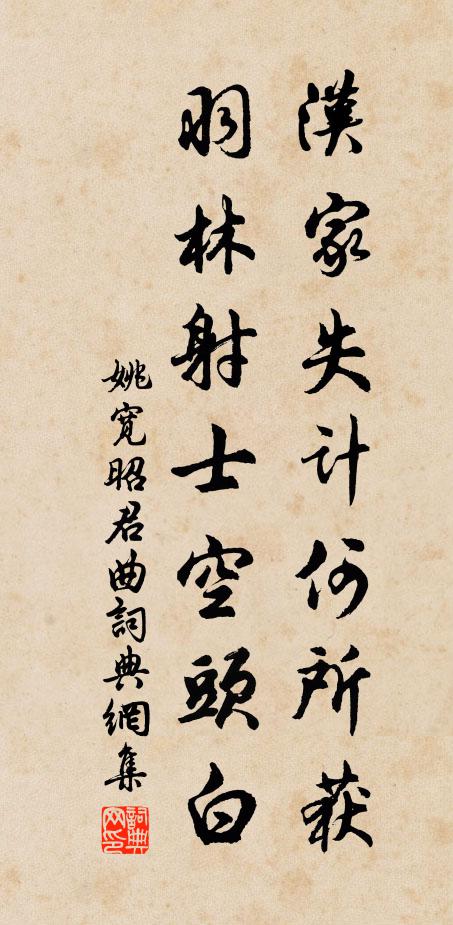 漢家失计何所获
羽林射士空頭白
姚寬昭君曲詞典網集
詞典网印